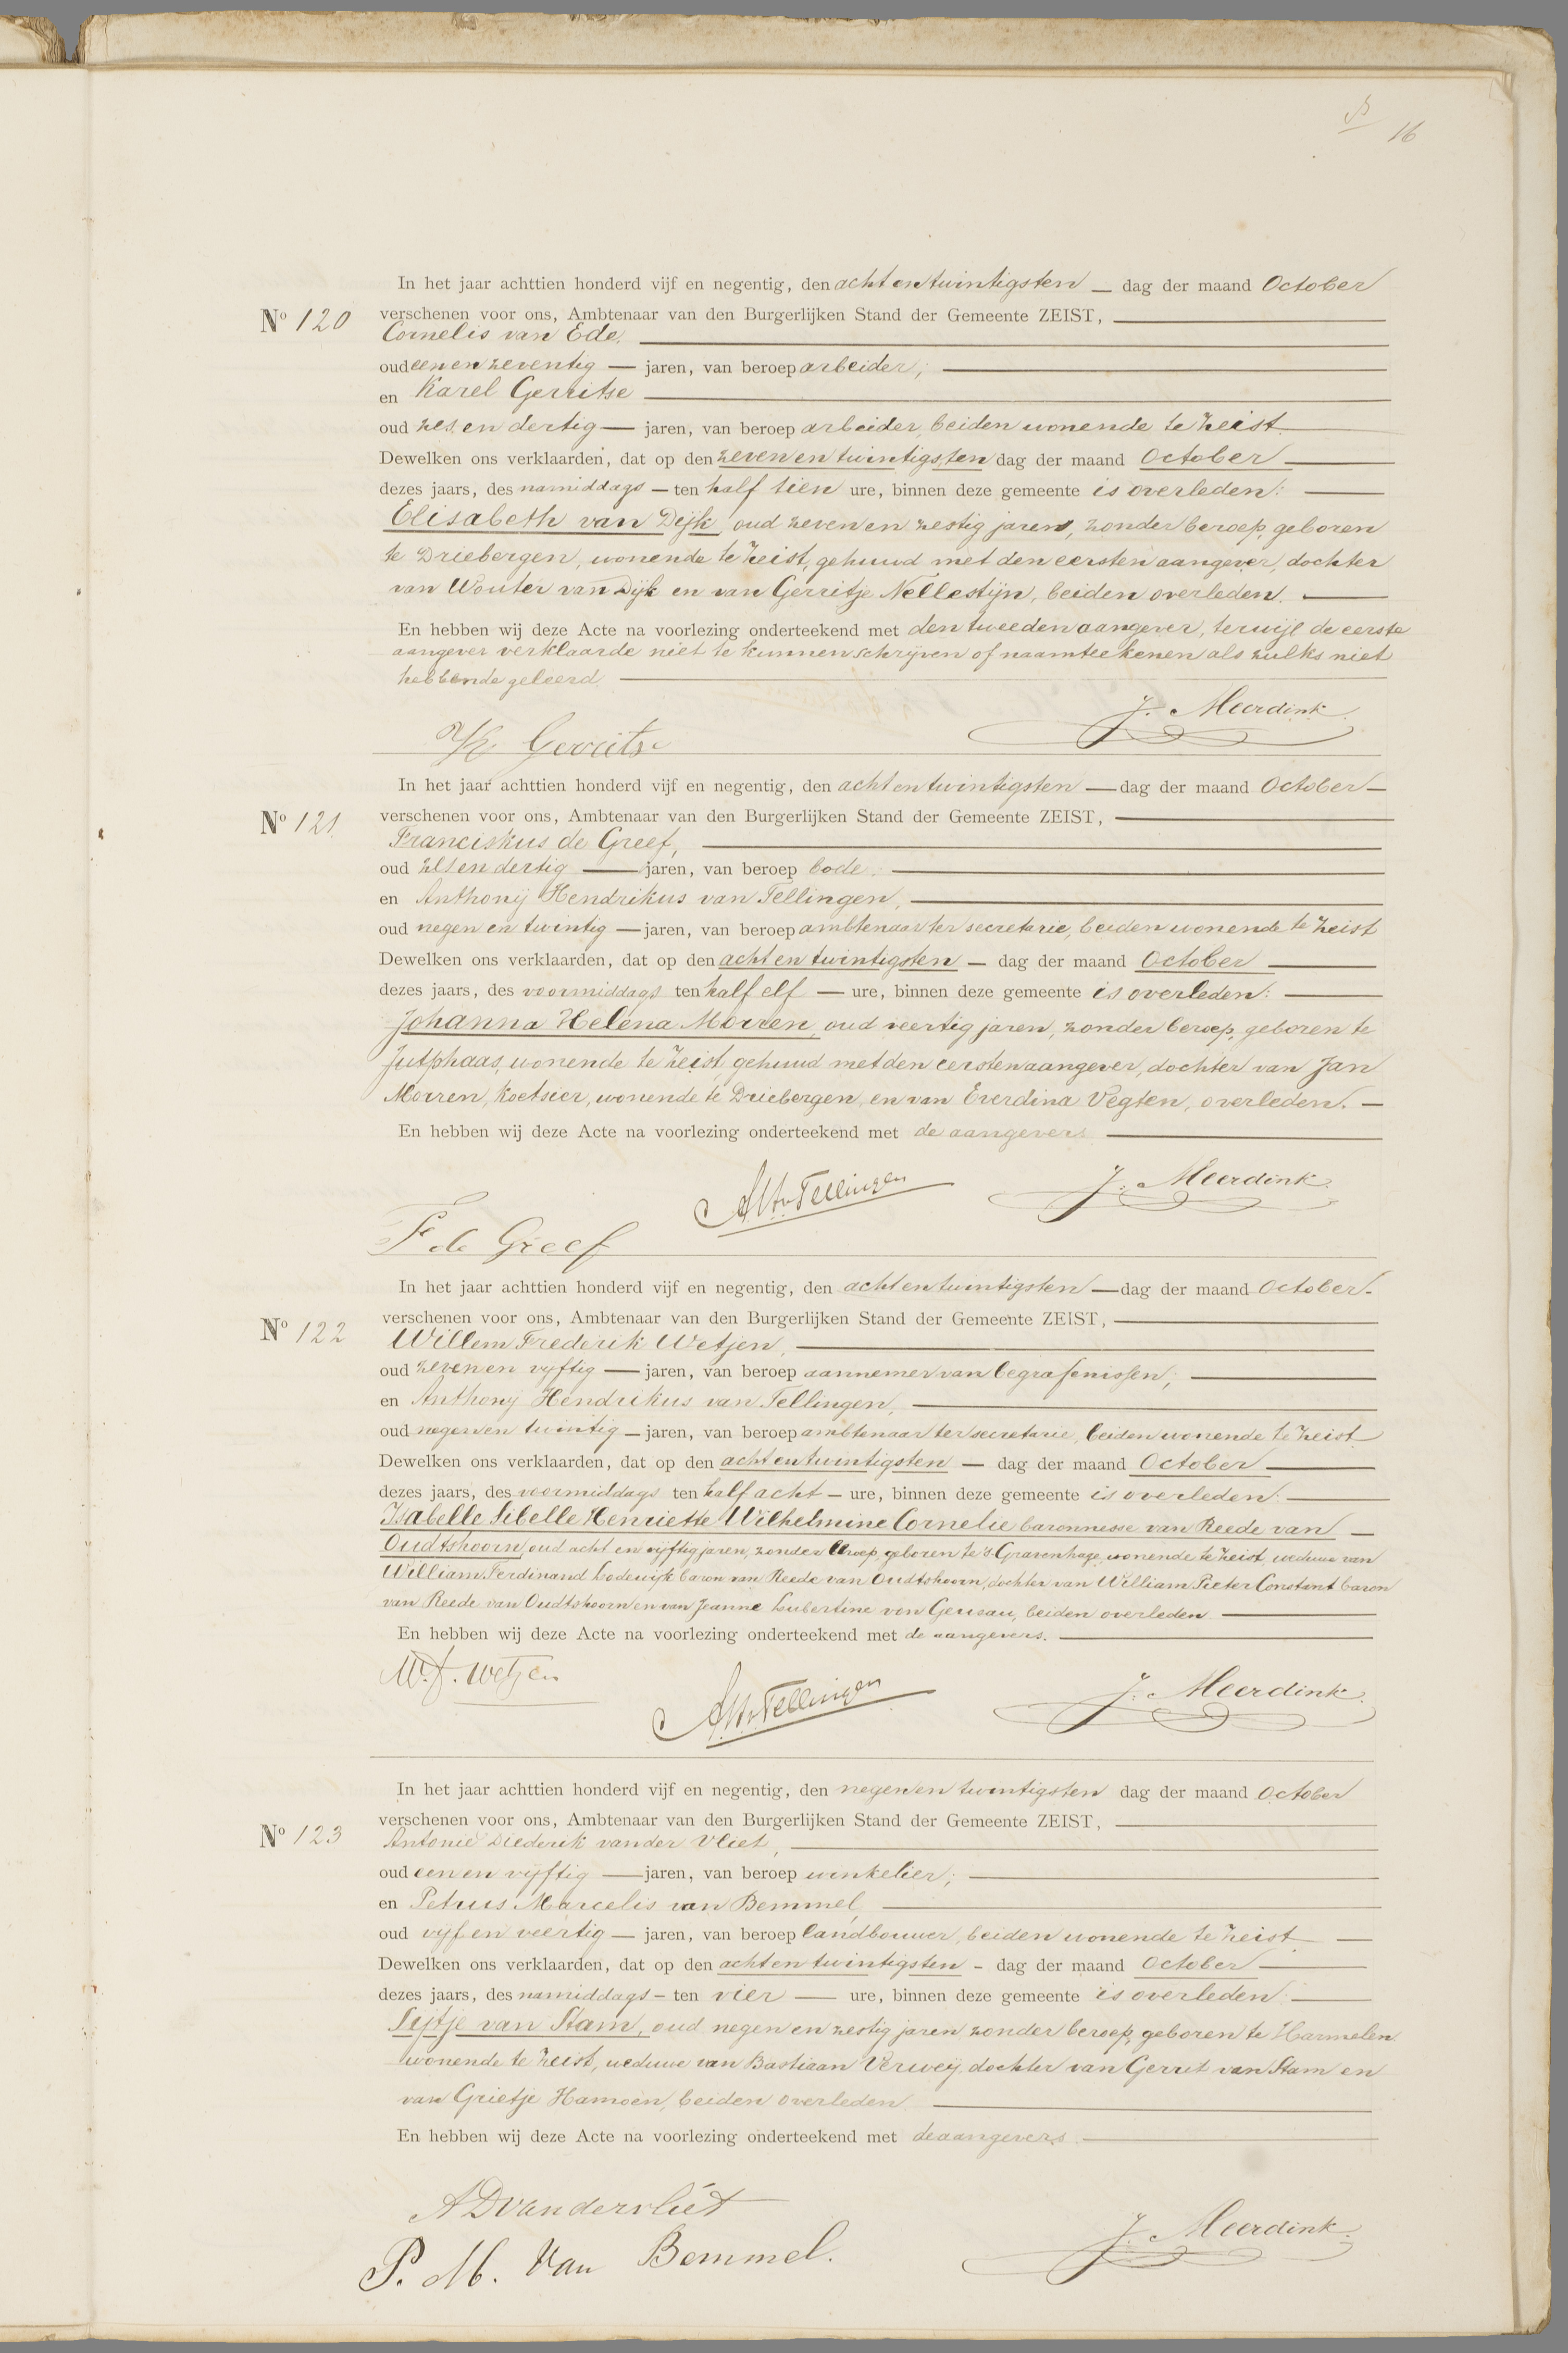 16
In het jaar achttien honderd vijf en negentig, den acht en twintigsten — dag der maand October
No 120 verschenen voor ons, Ambtenaar van den Burgerlijken Stand der Gemeente ZEIST, —
Cornelis van Ede, —
oud een en zeventig — jaren, van beroep arbeider; —
en Karel Gerritse —
oud zes en dertig — jaren, van beroep arbeider, beiden wonende te Zeist. —
Dewelken ons verklaarden, dat op den zeven en twintigsten dag der maand October —
dezes jaars, des namiddags — ten half tien ure, binnen deze gemeente is overleden: —
Elisabeth van Dijk, oud zeven en zestig jaren, zonder beroep, geboren
te Driebergen, wonende te Zeist, gehuwd met den eersten aangever, dochter
van Wouter van Dijk en van Gerritje Nellestijn, beiden overleden. —
En hebben wij deze Acte na voorlezing onderteekend met den tweeden aangever, terwijl de eerste
aangever verklaarde niet te kunnen schrijven of naamteekenen als zulks niet
hebbende geleerd —
J. Meerdink
K Gerritse
In het jaar achttien honderd vijf en negentig, den acht en twintigsten — dag der maand October —
No 121. verschenen voor ons, Ambtenaar van den Burgerlijken Stand der Gemeente ZEIST, —
Franciskus de Greef, —
oud zes en dertig — jaren, van beroep bode; —
en Anthonij Hendrikus van Tellingen, —
oud negen en twintig — jaren, van beroep ambtenaar ter secretarie, beiden wonende te Zeist
Dewelken ons verklaarden, dat op den acht en twintigsten — dag der maand October —
dezes jaars, des voormiddags ten half elf — ure, binnen deze gemeente is overleden: —
Johanna Helena Morren, oud veertig jaren, zonder beroep, geboren te
Jutphaas, wonende te Zeist, gehuwd met den eersten aangever, dochter van Jan
Morren, koetsier, wonende te Driebergen, en van Everdina Vegten, overleden. —
En hebben wij deze Acte na voorlezing onderteekend met de aangevers —
AHvTellingen J. Meerdink
F de Greef
In het jaar achttien honderd vijf en negentig, den acht en twintigsten — dag der maand October.
No 122 verschenen voor ons, Ambtenaar van den Burgerlijken Stand der Gemeente ZEIST, —
Willem Frederik Wetjen, —
oud zeven en vijftig — jaren, van beroep aannemer van begrafenissen; —
en Anthonij Hendrikus van Tellingen, —
oud negen en twintig — jaren, van beroep ambtenaar ter secretarie, beiden wonende te Zeist
Dewelken ons verklaarden, dat op den acht en twintigsten — dag der maand October —
dezes jaars, des voormiddags ten half acht — ure, binnen deze gemeente is overleden: —
Isabelle Sibelle Henriette Wilhelmine Cornelie baronnesse van Reede van —
Oudtshoorn, oud acht en vijftig jaren, zonder beroep, geboren te 's Gravenhage, wonende te Zeist, weduwe van
William Ferdinand Lodewijk baron van Reede van Oudtshoorn, dochter van William Pieter Constant baron
van Reede van Oudtshoorn en van Jeanne Lubertine von Geusau, beiden overleden —
En hebben wij deze Acte na voorlezing onderteekend met de aangevers. —
W.F. Wetjen
AHvTellingen J. Meerdink
In het jaar achttien honderd vijf en negentig, den negen en twintigsten dag der maand October
No 123 verschenen voor ons, Ambtenaar van den Burgerlijken Stand der Gemeente ZEIST, —
Antonie Diederik van der Vliet, —
oud een en vijftig — jaren, van beroep winkelier; —
en Petrus Marcelis van Bemmel, —
oud vijf en veertig — jaren, van beroep landbouwer, beiden wonende te Zeist —
Dewelken ons verklaarden, dat op den acht en twintigsten - dag der maand October —
dezes jaars, des namiddags — ten vier — ure, binnen deze gemeente is overleden: —
Sijtje van Stam, oud negen en zestig jaren zonder beroep, geboren te Harmelen
wonende te Zeist, weduwe van Bastiaan Verweij, dochter van Gerrit van Stam en
van Grietje Hamoen, beiden overleden. —
En hebben wij deze Acte na voorlezing onderteekend met de aangevers. —
AD van der vliet
J. Meerdink
P. M. Van Bemmel.